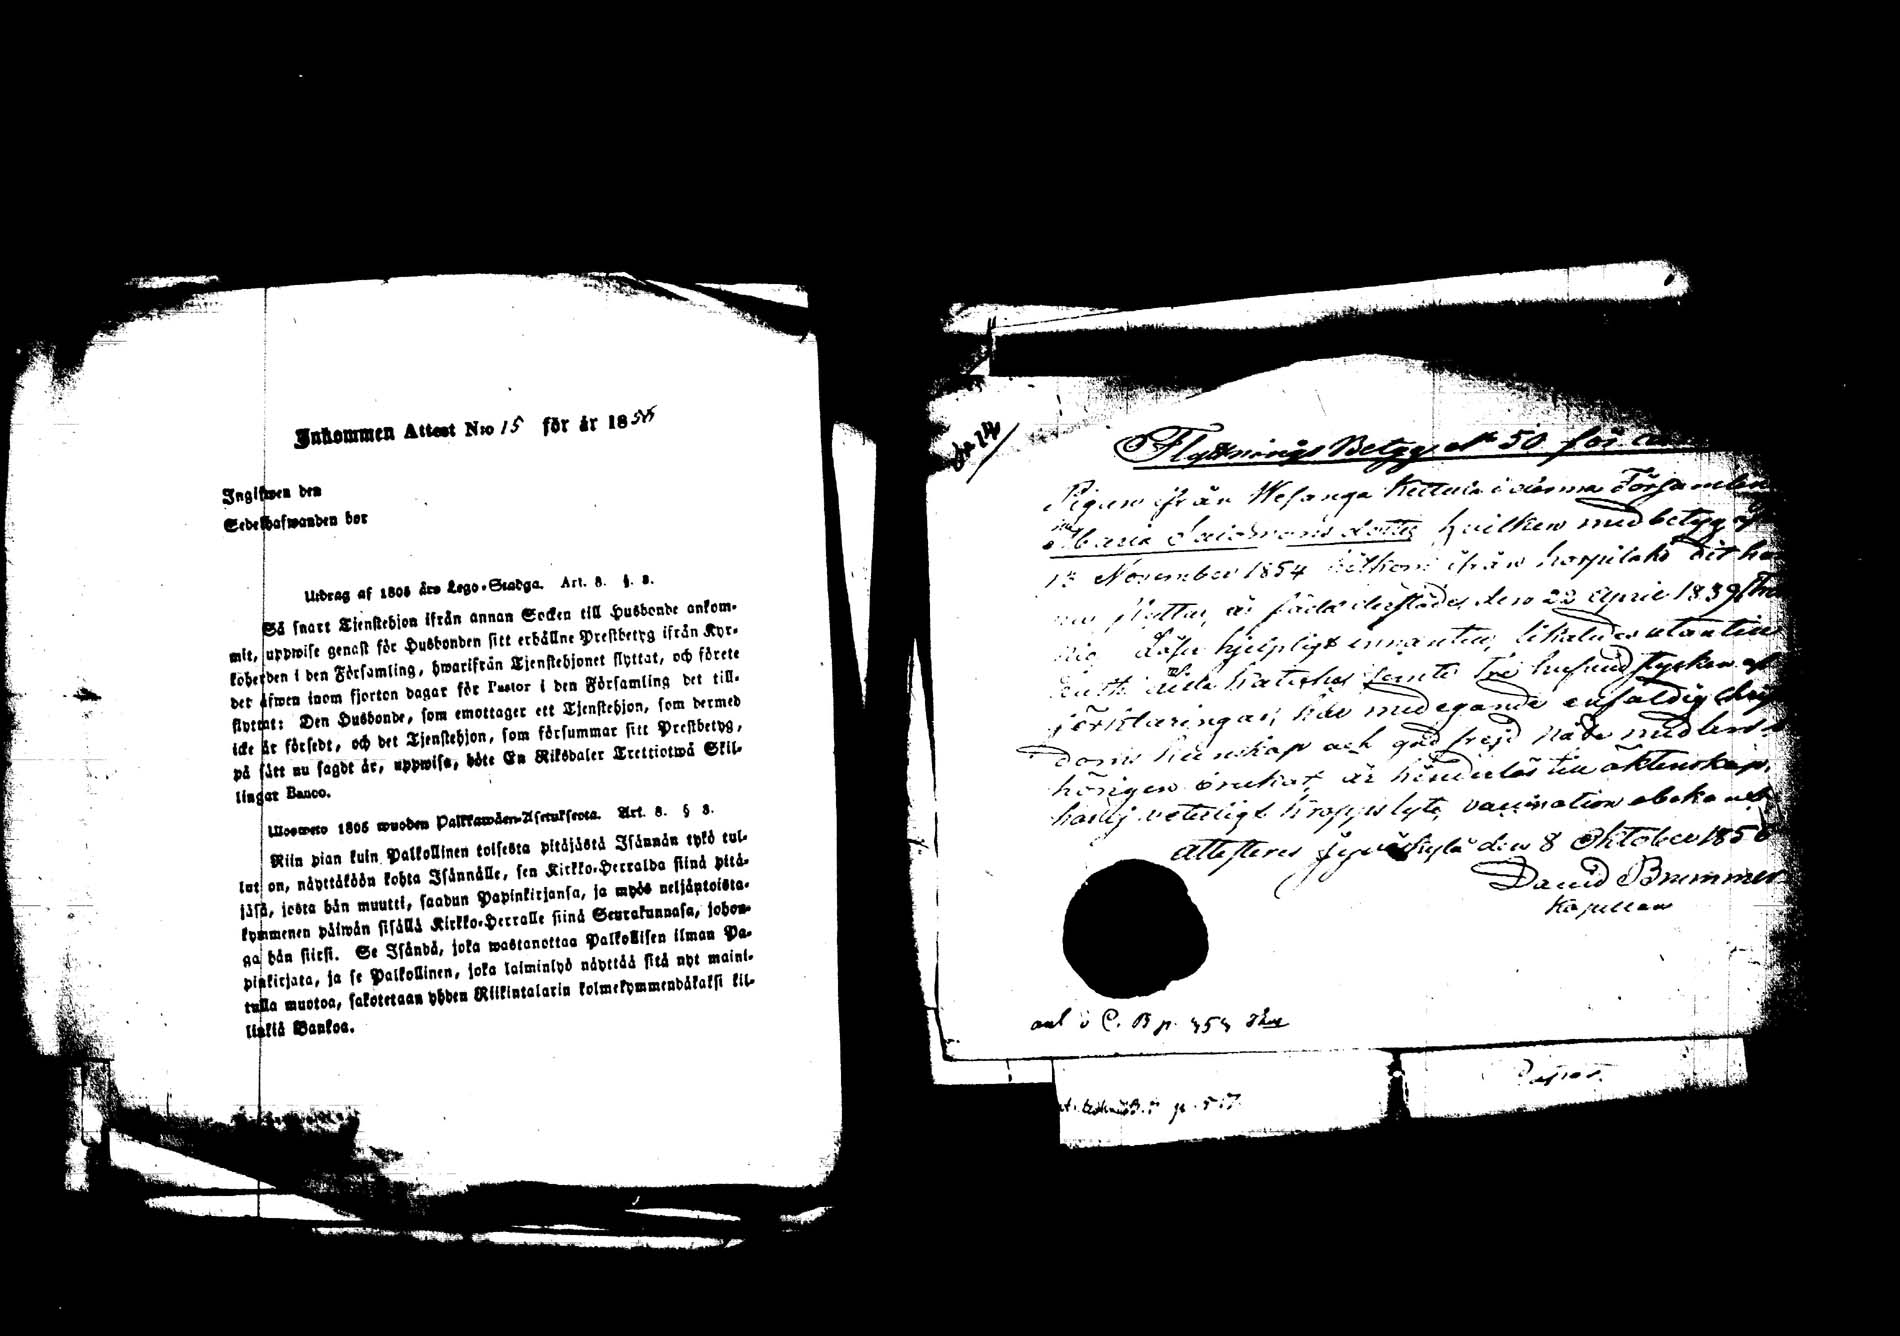 Inkommen Attest N:o 15 för år 1856
Ingifwen den
Sedelhafwanden bor
Utdrag af 1805 års Lego-Stadga. Art. 8. §. 8.
Så snart Tjenstehjon ifrån annan Socken till Husbonde ankom-
mit, uppwise genast för Husbonden sitt erhållne Prestbetyg ifrån Kyr-
koherden i den Församling, hwarifrån Tjenstehjonet flyttat, och förete
det äfwen inom fjorton dagar för Pastor i den Församling det till-
flyttat: Den Husbonde, som emottager ett Tjenstehjon, som dermed
icke är försedt, och det Tjenstehjon, som försummar sitt Prestbetyg,
på sätt nu sagdt är, uppwisa, böte En Riksdaler Trettiotwå Skil-
lingar Banco.
Ulosweto 1805 wuoden Palkkawäen-Asetuksesta. Art. 8. § 8.
Niin pian kuin Palkollinen toisesta pitäjästä Isännän tykö tul-
lut on, näyttäköön kohta Isännälle, sen Kirkko-Herralda siinä pitä-
jäsä, josta hän muutti, saadun Papinkirjansa, ja myös neljäntoista-
kymmenen päiwän sisällä Kirkko-Herralle siinä Seurakunnasa, johon-
ga hän siirsi. Se Isändä, joka wastanottaa Palkollisen ilman Pa-
pinkirjata, ja se Palkollinen, joka laiminlyö näyttää sitä nyt maini-
tulla muotoa, sakotetaan yhden Riikintalarin kolmekymmendäkaksi kil-
linkiä Bankoa.
Flyttnings Betyg No 50 för
Pigan ifrån Wesanga Kettula i denna Församlin
Maria Salomons dotter hvilken med betyg af
12 November 1854 hitkom ifrån
flyttar, är född derstädes den 22 April 1839
Läser hjelpligt innantill, likaledes utantill
Luth: lilla Katekes jemte tre hufvudstycken af
förklaringar, har med egande enfaldig chris
doms kunskap och god frejd Nåde medlen
hörigen brukat är hinderlös till äktenskap,
vaccination
Attesteras Jyväskylä den 8 Oktober 1856
David Brummer
Kapellan
ant i C. B p. 454
p. 57.